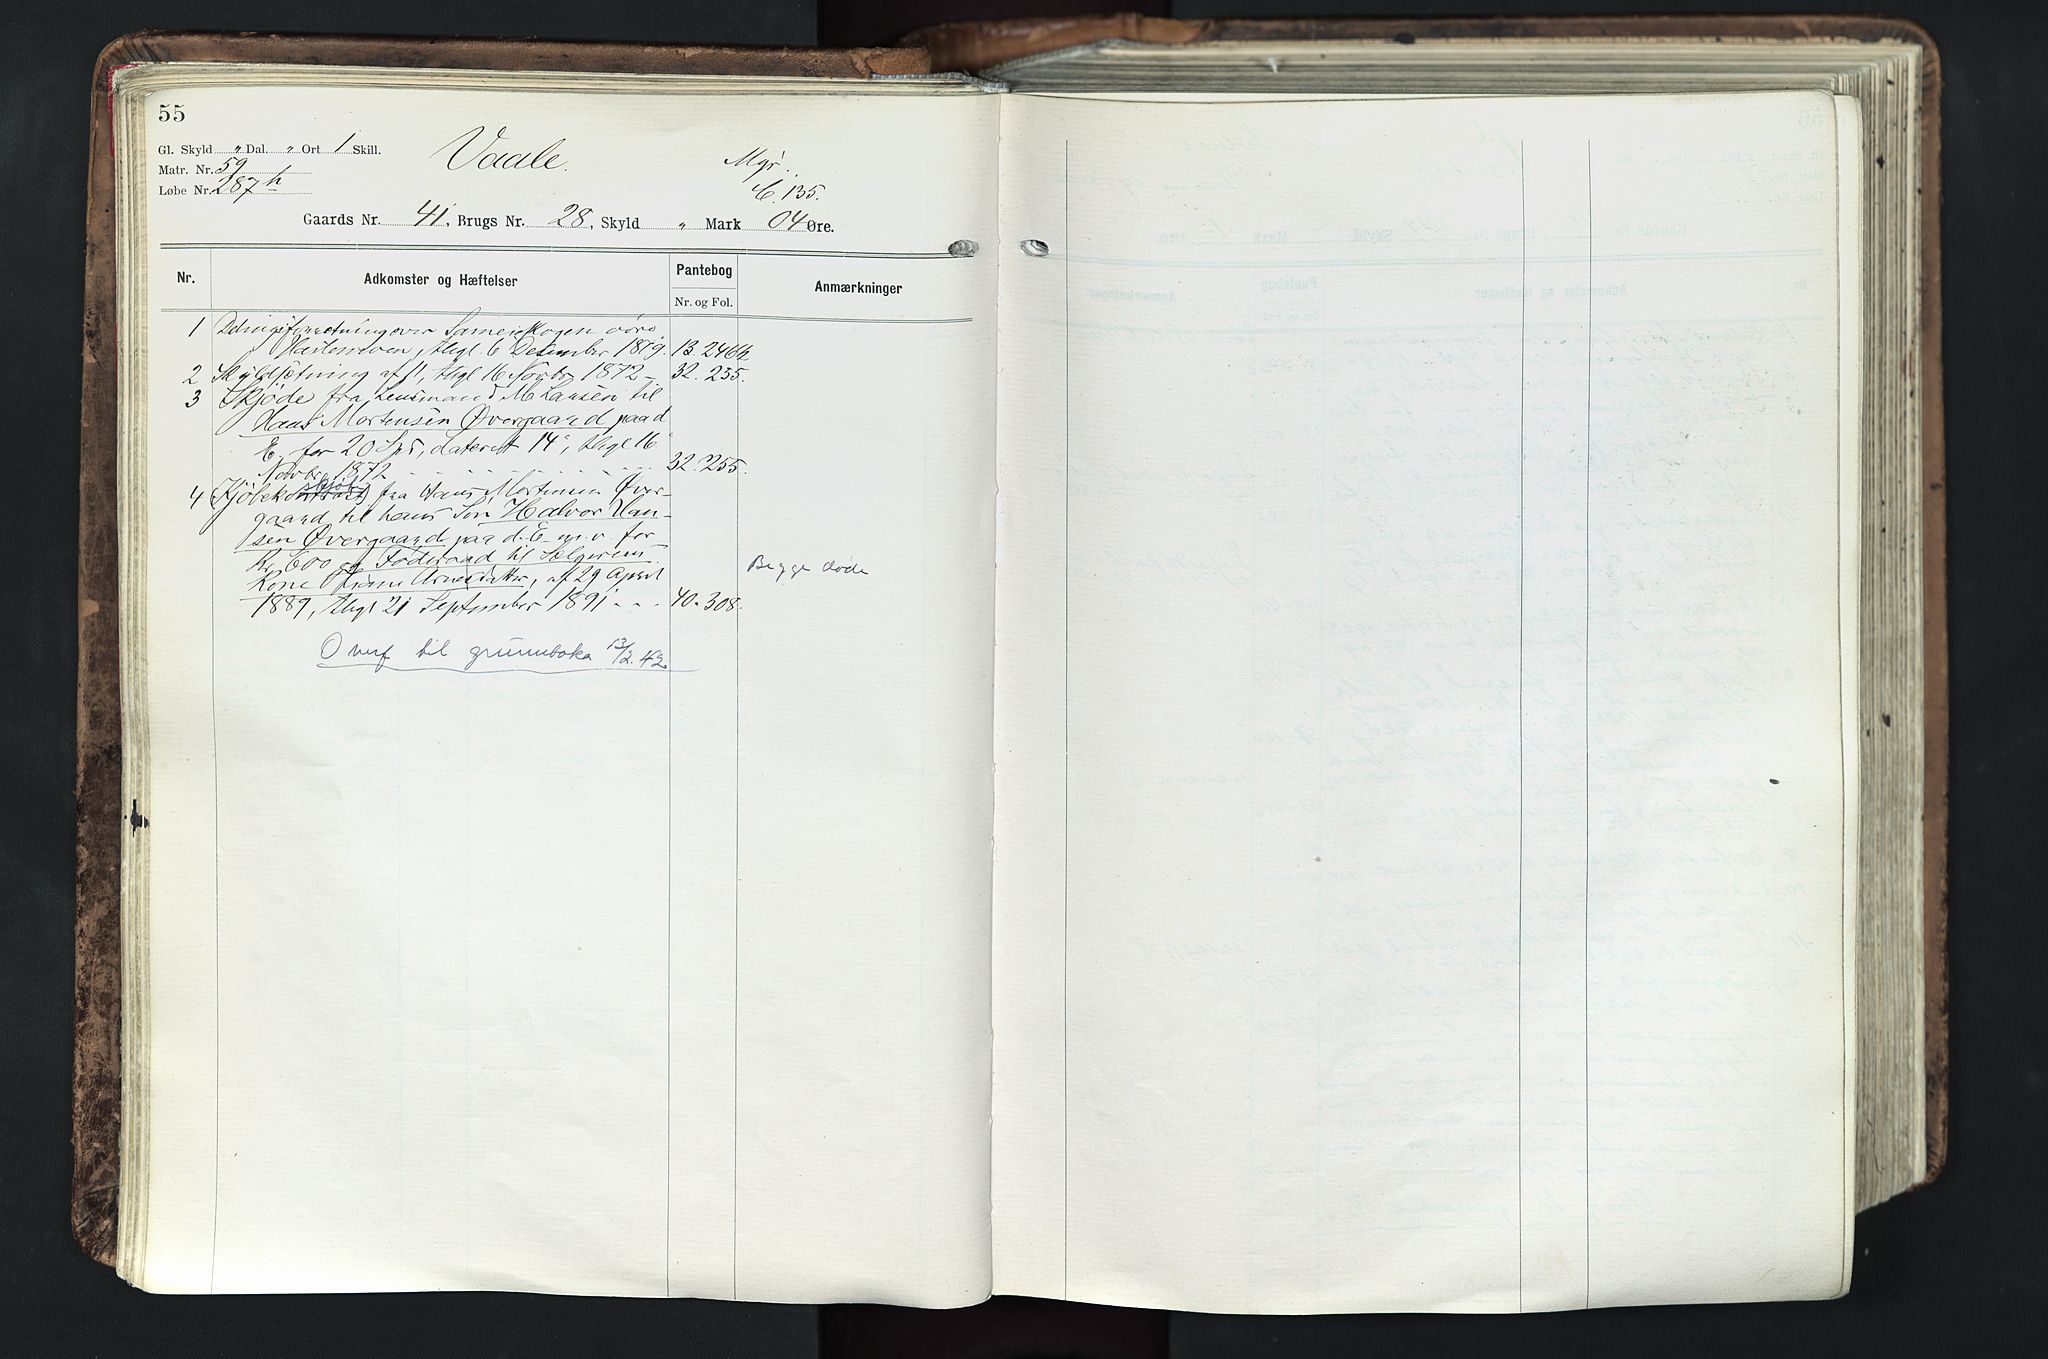 55
Gl. Skyld " Dal. " Ort 1 Skill.
Vaale. Myr.
Matr. Nr. 59
Løbe Nr. 287 h
C. 135.
Gaards Nr. 41, Brugs Nr. 28, Skyld " Mark 04 Øre.
Nr. Adkomster og Hæftelser Pantebog Anmærkninger
Nr. og Fol.
1 Delingsforretning over Sameieskogen
thgl. 6 Desember 1879. 13. 246
2 Skyldsætning af 11, thgl 16 Novbr 1872 - 32. 255.
3 Skjøde fra Lensmand M Larsen til
Hans Mortensen Øvergaard paa d
E. for 20 Spd, dateret 14, thgl 16
Novbr 1872 32. 255.
4 (Kjøbekontrakt) skjøde fra Hans Mortensen Øver-
gaard til hans Søn Halvor Han-
sen Øvergaard paa d. E. m. v. for
Kr. 600 og Føderaad til Sælgerens
Kone Arnesdatter, af 29 April Begge døde
1889, thgl 21 September 1891 - - - 40. 308.
Overf til grunnboka 13/2. 42.